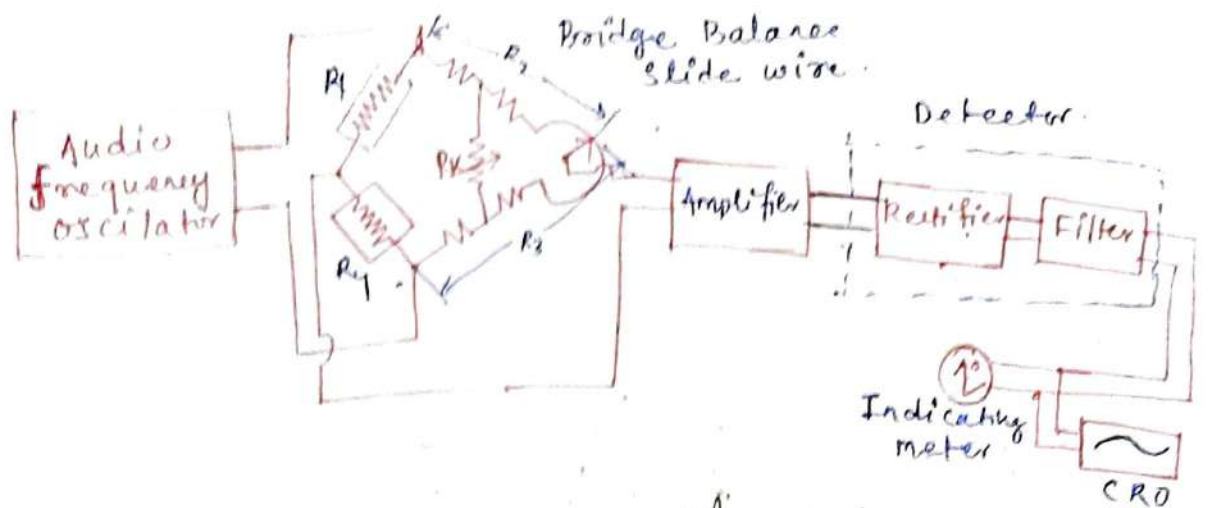 Bridge Balance
slide wire.
R2
R1
Detector.
Audio
frequency
oscilator
RV
Amplifier
Rectifier
Filter
R3
R4
Indicating
meter
CRO